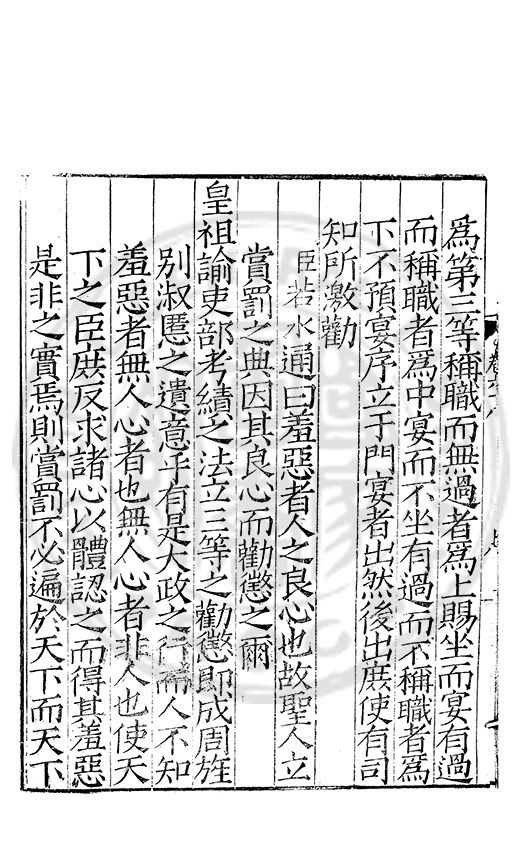 爲第三等稱職而無過者爲上賜坐而宴有過
而稱職者爲中宴而不坐有過而不稱職者爲
下不預宴序立于門宴者出然後出庶使有司
知所激勸
臣若水通曰羞惡者人之良心也故聖人立
賞罰之典因其良心而勸懲之爾
皇祖諭吏部考績之法立三等之勸懲即成周旌
別淑慝之遺意乎有是大政之行而人不知
羞惡者無人心者也無人心者非人也使天
下之臣庶反求諸心以體認之而得其羞惡
是非之實焉則賞罰不必遍於天下而天下